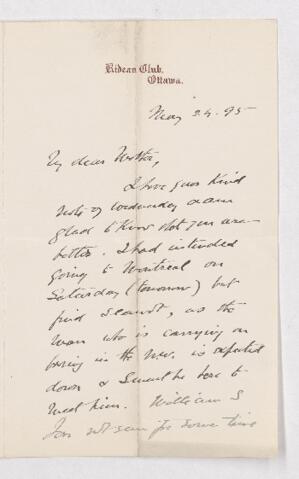 Rideau Club,
Ottawa.
May 24. 95
My dear
I have your kind
note of Wednesday &am
glad to know that you are
better. I had intended
going to Montreal on
Saturday (tomorrow) but
find I cannot, as the
man who is carrying on
boring in the NW. is expected
down & I must be here to
meet him. William I
have not seen for some time